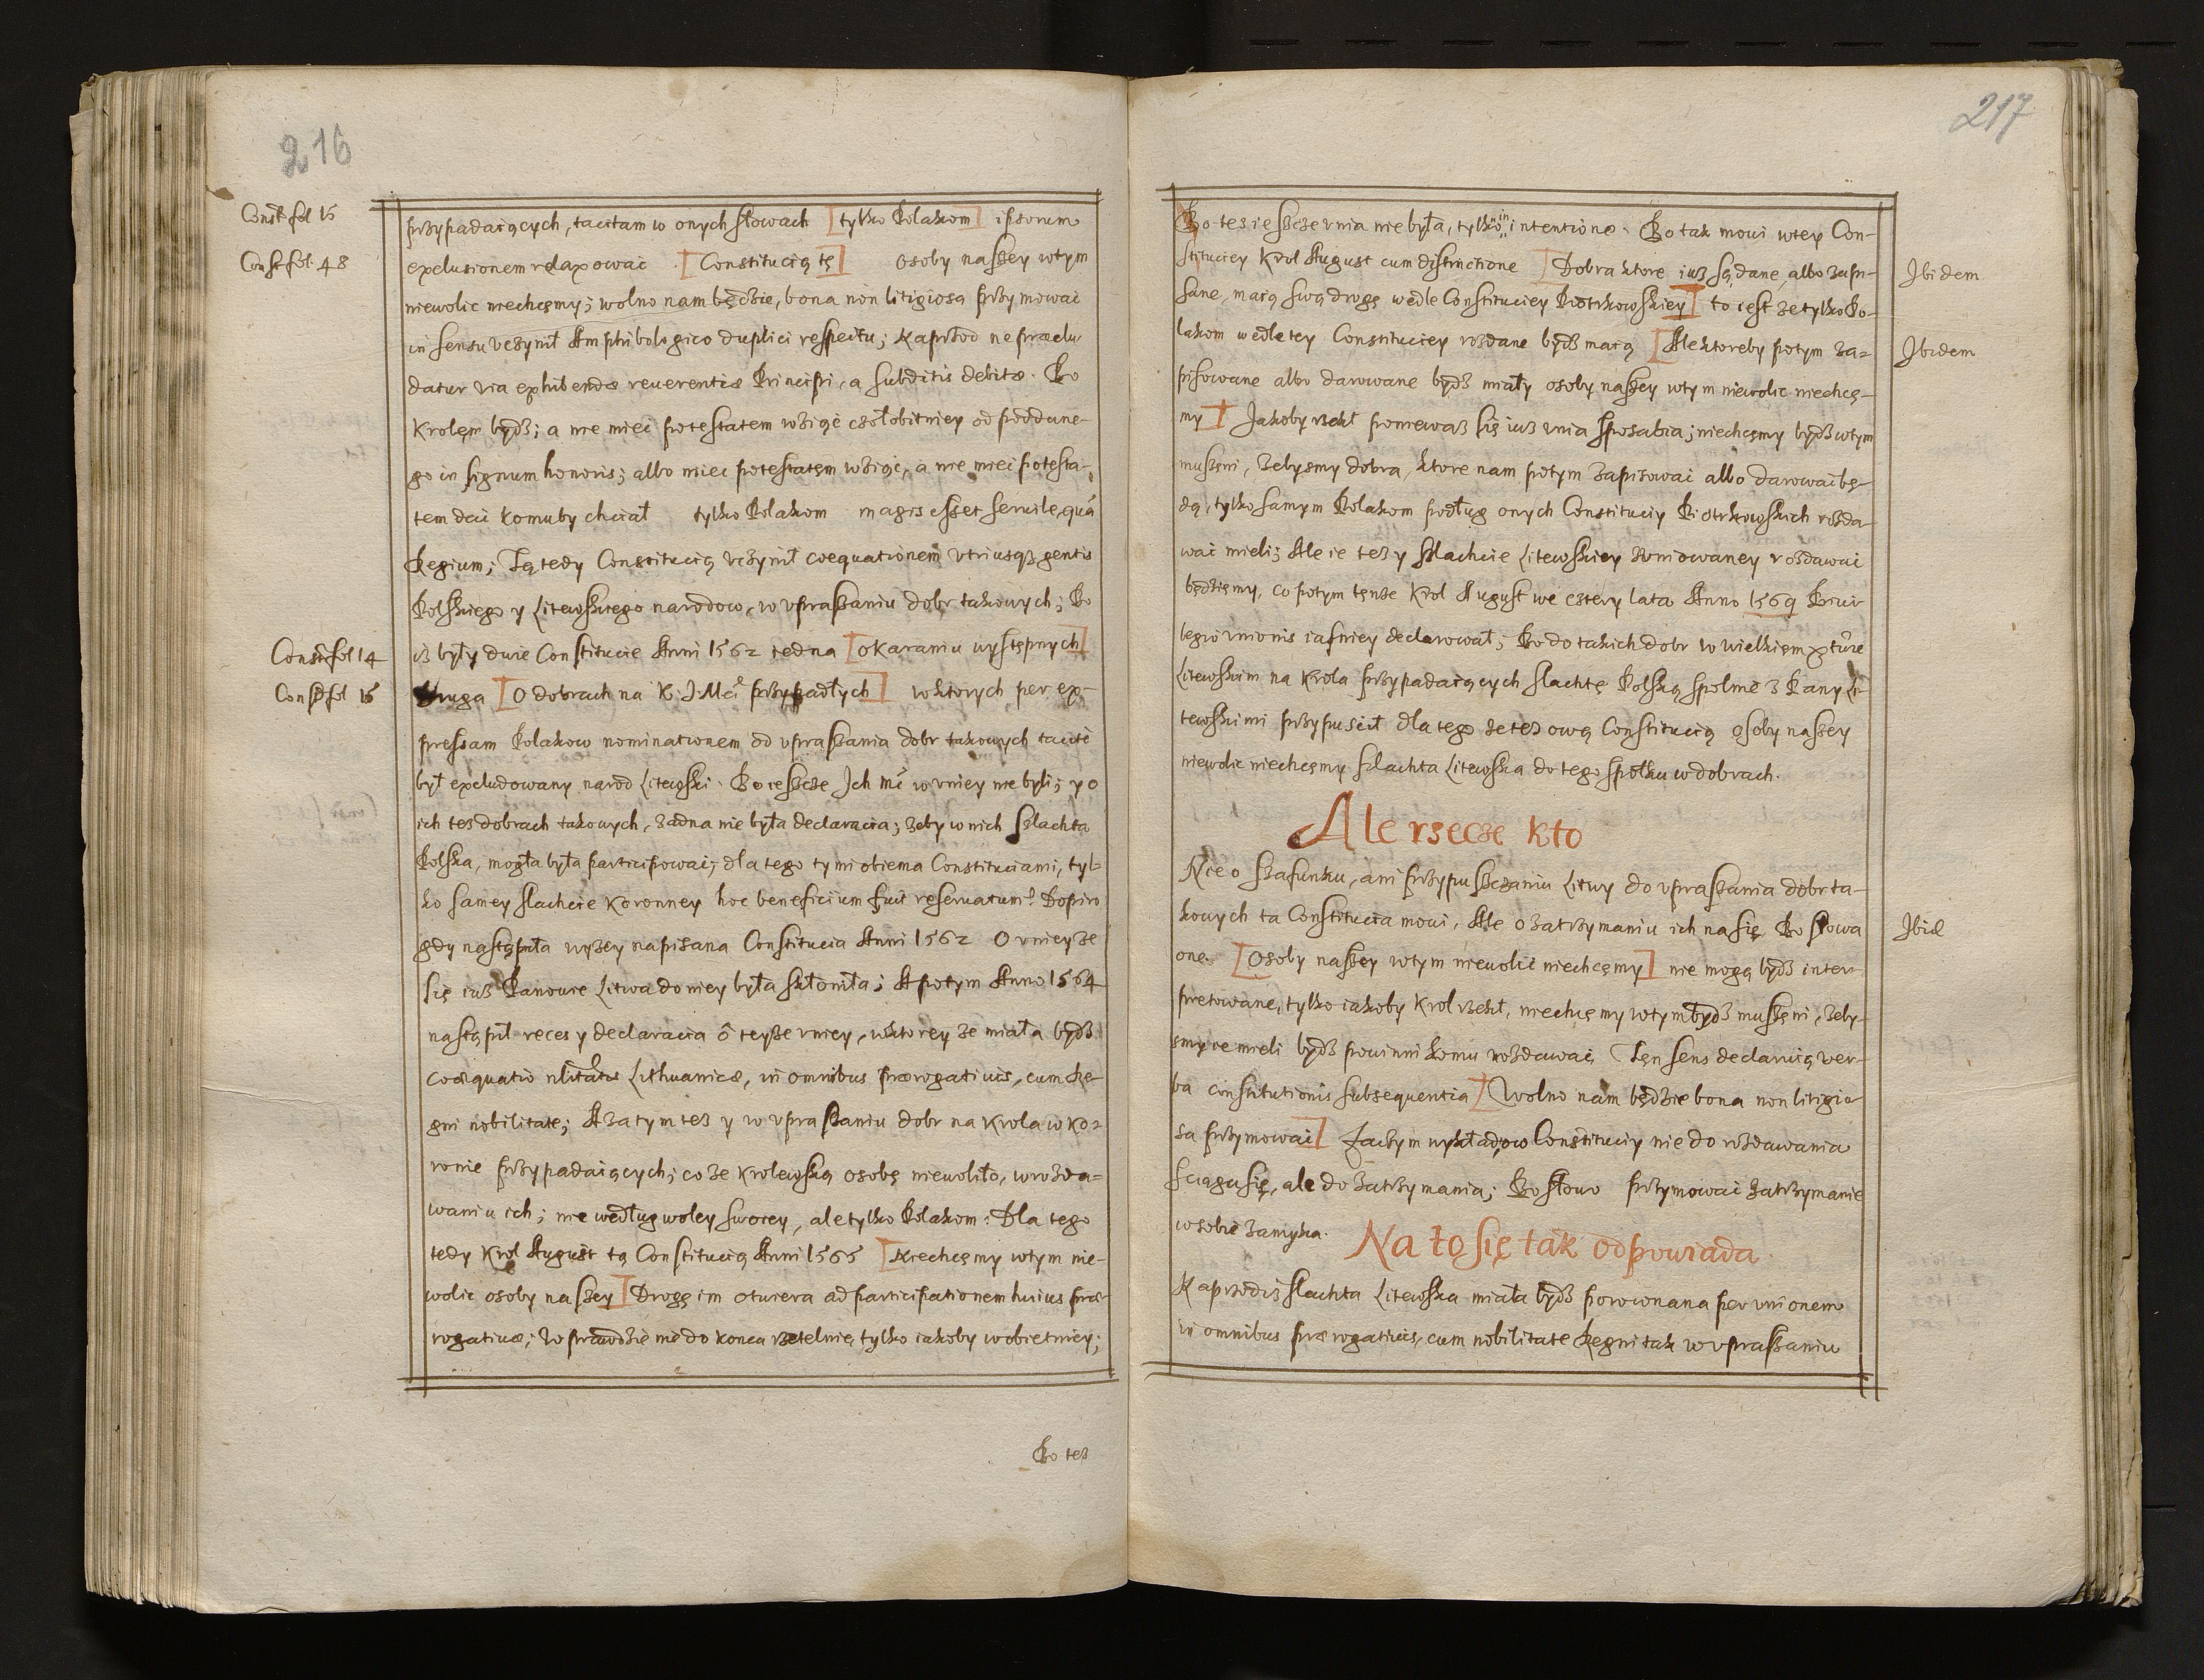 216
Const fol 15
Const fol. 48
przypadaiących, tacitam w onych słowach [tylko Polakom] ipsorum
exclusionem relaxować [Constitucią tę] osoby naszey wtym
niewolic niechcęmy; wolno nam będzie, bona non litigiosa przymować
in sensu vczynił Amphibologico duplici respectu; Naprzod ne præclu
datur via exhibendæ reuerentiæ Principi, a subditis debitæ. Bo
Krolem bydz; a nie mieć potestatem wziąć czołobitniey od poddane-
go in signum honoris; albo miec potestatem wziąć, a nie mieć potesta-
tem dać komuby chciał tylko Polakom magis esset seruile, quã
Regium; Tą tedy Constitucią vczynił coequationem vtriusq3 gentis
Polskiego y Litewskiego narodow, w vpraszaniu dobr takowych; Bo
Const fol 14
iż były dwie Constitucie Anni 1562 iedna [o karaniu występnych]
Const fol 15
Druga [O dobrach na K. J. Mći przypadłych] w ktorych per ex-
pressam Polakow nominationem od vpraszania dobr takowych tacitè
był excludowany narod Litewski. Bo ieszcze Ich Mć w vniey nie byli; y o
ich tez dobrach takowych, zadna nie była declaracia; zeby w nich szlachta
Polska, mogła była participować; dla tego tymi obiema Constituciami, tyl-
ko samey slachcie Koronney hoc beneficium fuit reseruatum. Dopiro
gdy nastąpiła wyzey napisana Constitucia Anni 1562 O vniey ze
się iuz Panowie Litwa do niey była skłoniła; A potym Anno 1564
nastąpił reces y declaracia o teyze vniey, w ktorey ze miała bydz
coæquatio nlitatis Lithuanicæ, in omnibus prærogatiuis, cum Re-
gni nobilitate; A zatym tez y w vpraszaniu dobr na Krola w Ko-
ronie przypadaiących; co ze krolewską osobę niewoliło, w rozda-
waniu ich; nie według woley swoiey, ale tylko Polakom: Dla tego
tedy Krol August tą Constitucią Anni 1565 [Niechcęmy wtym nie-
wolic osoby naszey] Drogę im otwiera ad participationem huius præ-
rogatiuæ; w prawdzie nie do konca rzetelnie, tylko iakoby w obietnicy;
Bo tez
217
Bo tez ieszcze vnia nie była, tylko in intentione. Bo tak mowi w tey Con-
stituciey Krol August cum distinctione [Dobra ktore iuz są dane, albo zapi-
Ibidem
sane, maią swą drogę wedle Constituciey Piotrkowskiey] to iest ze tylko Po-
lakom wedle tey Constituciey rozdane bydz maią [Ale ktoreby potym za-
Ibidem
pisowane albo darowane bydz miały osoby naszey wtym niewolic niechcę-
my] Jakoby rzekł poniewaz się iuz vnia sposabia; niechcęmy bydz wtym
muszeni, zebysmy dobra, ktore nam potym zapisować albo darować bę-
dą, tylko samym Polakom podług onych Constituciy Piotrkowskich rozda-
wać mieli; Ale ie tez y szlachcie Litewskiey Vniowaney rozdawać
będziemy, co potym tenze Krol August we cztery lata Anno 1569 Priui-
legio vnionis iasniey declarował; Bo do takich dobr w wielkiem X͠twie
Litewskim na Krola przypadaiących slachtę Polską spolnie z Pany Li-
tewskimi przypuscił dla tego ze tez ową Constitucią osoby naszey
niewolic niechcęmy szlachta Litewska do tego społku w dobrach.
Ale rzecze kto
Nie o szafunku, ani przypuszczaniu Litwy do vpraszania dobr ta-
kowych ta Constitucia mowi, Ale o zatrzymaniu ich na się Bo słowa
Ibid
one. [Osoby naszey wtym niewolić niechcęmy] nie mogą bydz inter-
pretowane, tylko iakoby Krol rzekł, niechcęmy wtym bydz muszeni, zeby-
smy ie mieli bydz powinni komu rozdawać, Ten sens declaruią ver-
ba constitutionis subsequentia [Wolno nam będzie bona non litigio-
sa przymować] Zaczym wykład, ow Constituciy nie do rozdawania
sciąga się, ale do zatrzymania; Bo słowo przymować zatrzymanie
w sobie zamyka.
Na to się tak odpowiada.
Naprzod iz slachta Litewska miała bydz porownana per vnionem
in omnibus prærogatiuis, cum nobilitate Regni tak w vpraszaniu